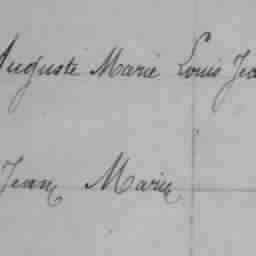 Auguste Marie Louis Jea
Jean Marie